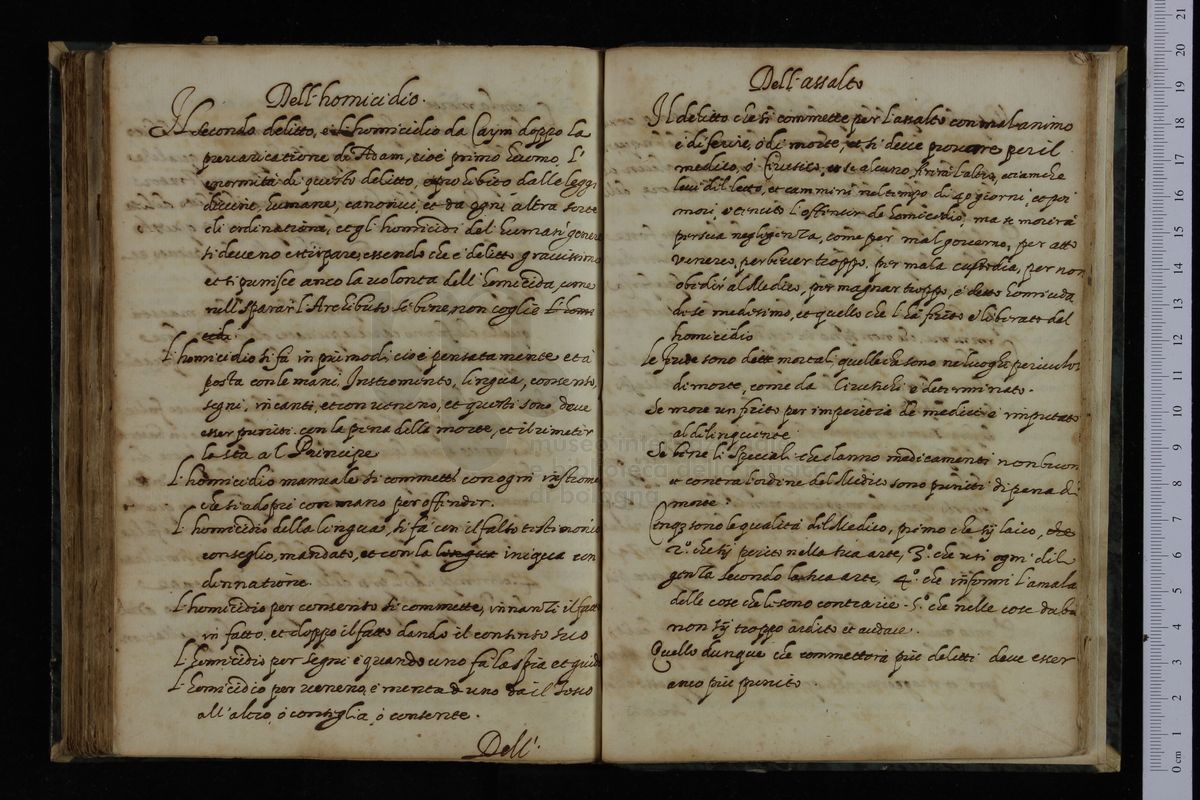 Dell'homicidio.
Il secondo delitto, è l'homicidio da Caym doppo la
prevaricatione di Adam, cioè primo huomo, l'
enormità di questo delitto, è prohibito dalle leggi
divine, humane, canonici, et da ogni altra sorte
di ordinatione, et gli homicidi del human genere
si deveno estirpare, essendo che è delitto gravissimo
et si punisce anco la volontà dell'homicida, come
nell sparar l'Archibuso se bene, non coglie l'homi
cida.
L'homicidio si fà in più modi, cioè pensatamente et à
posta con le mani, Instromento, lingua, consenso,
segni, incanti, et con veneno, et questi sono deve
esser puniti con la pena della morte, et il rimetter
la sta al Principe
L'homicidio manuale si commette con ogni instrome
che si adopri con mano per offender.
L'homicidio della lingua, si fà con il falso testimonio
conseglio, mandato, et con la lingua iniqua con
dennatione.
L'homicidio per consenso si commette, innanzi il fatto
in fatto, et doppo il fatto dando il consenso suo
L'homicidio per segni è quando uno fà la spia et guida
L'homicidio per veneno, è mentre uno dà il tosico
all'altro, ò consiglia, ò consente.
Dell'
Dell'assalto
Il delitto che si commette per l'assalto con mal animo
è di ferire, ò di morte, et si deve provare per il
medico, ò Cirusico, et se alcuno ferirà l'altro, etiam che
levi dil letto, et camini nel tempo di 40 giorni, et poi
mori, è tenuto l'offensor de homicidio, ma se morirà
per sua negligenza, come per mal governo, per atto
venereo, per bever troppo, per mala custodia, per non
obedir al Medico, per magnar troppo, è detto homicida
di se medesimo, et quello che l'hà ferito è liberato dal
homicidio
Le feride sono dette mortali quelle che sono ne luoghi periculosi
di morte, come da Cirusichi è determinato.
Se more un ferito per imperitia de medici è imputato
al dilinquente
Se bene li Speciali che danno medicamenti non buoni
et contra l'ordine del Medico sono puniti di pena di
morte.
Cinque sono le qualità dil Medico, primo che sij laico, che
2.º che sij perito nella sua arte, 3.º che usi ogni dili
genza secondo la sua arte, 4.º che informi l'amala
delle cose che li sono contrarie. 5.º che nelle cose dubi
non sij troppo ardito et audace.
Quello dunque che commetterà più delitti deve esser
anco più punito.
museo inter
biblioteca della musica
di bologna